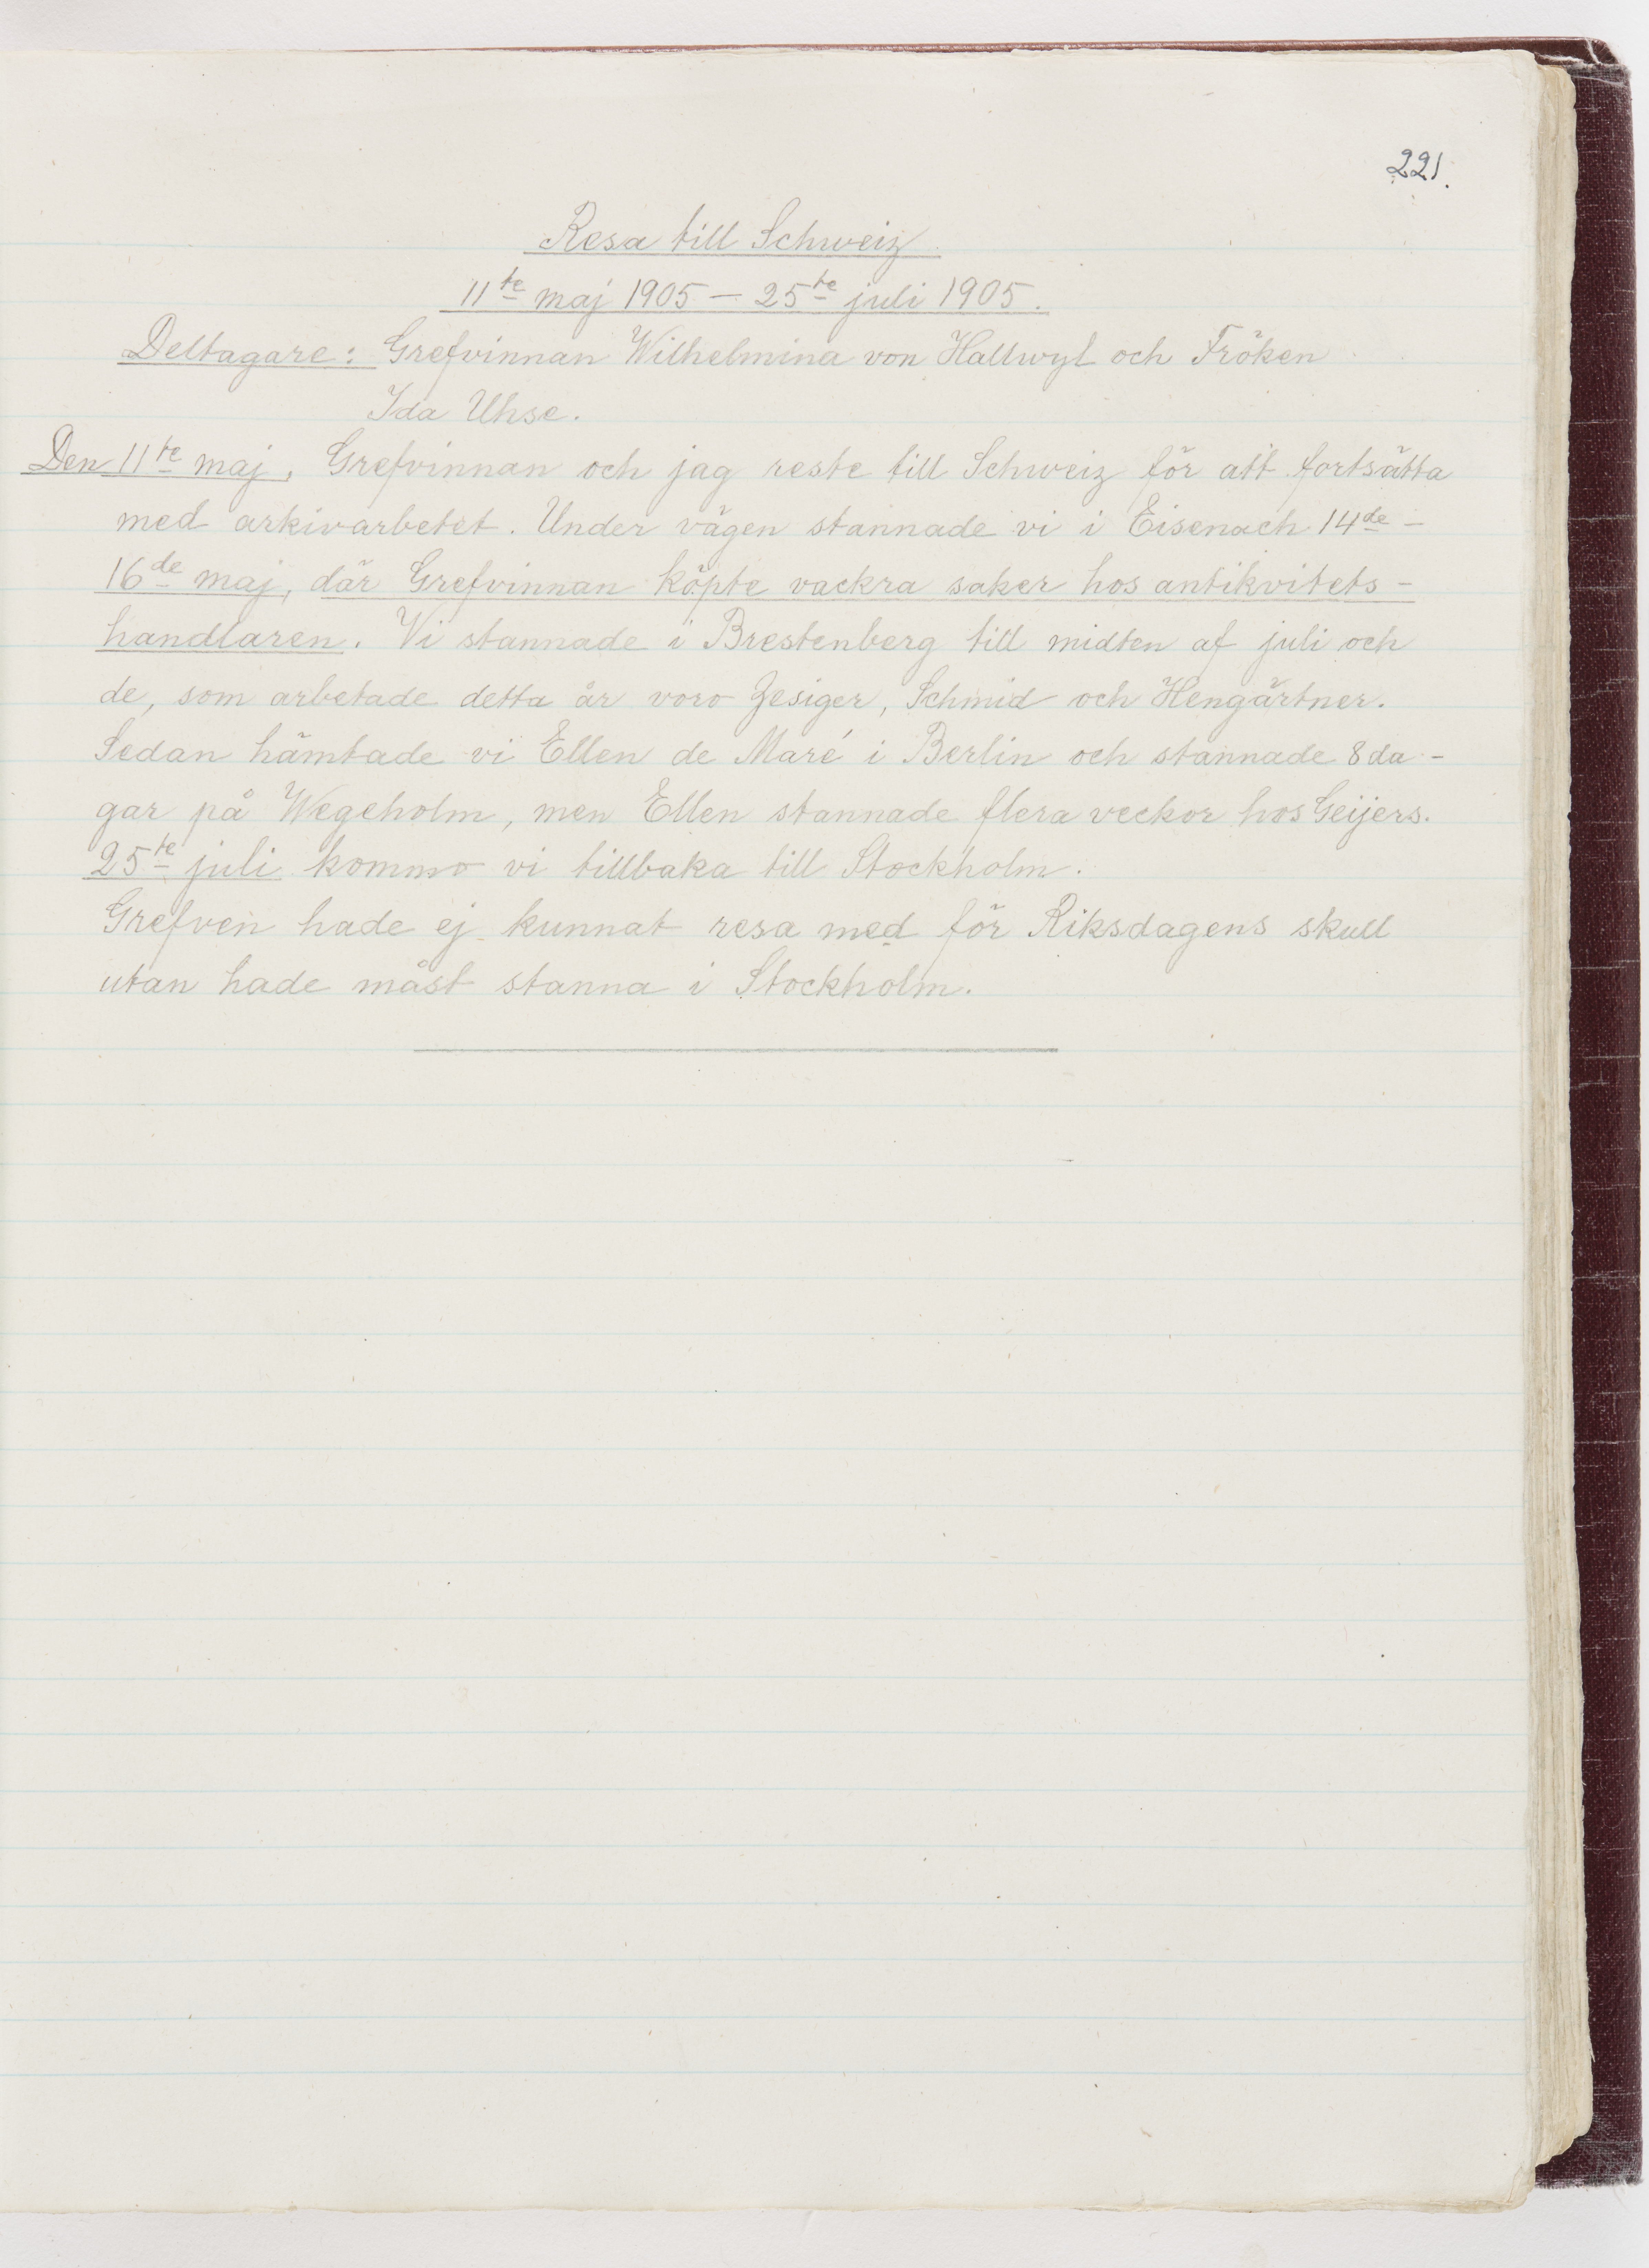 221.
Resa till Schweiz
11te maj 1905 – 25te juli 1905.
Deltagare: Grefvinnan Wilhelmina von Hallwyl och Fröken
Ida Uhse.
Den 11te maj. Grefvinnan och jag reste till Schweiz för att fortsätta
med arkivarbetet. Under vägen stannade vi i Eisenach 14de –
16de maj, där Grefvinnan köpte vackra saker hos antikvitets-
handlaren. Vi stannade i Brestenberg till midten af juli och
de, som arbetade detta år voro Zesiger, Schmid och Hengärtner.
Sedan hämtade vi Ellen de Maré i Berlin och stannade 8 da-
gar på Wegeholm, men Ellen stannade flera veckor hos Geijers.
25te juli kommo vi tillbaka till Stockholm.
Grefven hade ej kunnat resa med för Riksdagens skull
utan hade måst stanna i Stockholm.